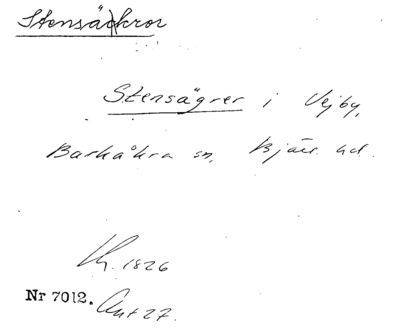 Stensäckror
Stensägrer i Vejby,
Barkåkra sn, Bjäre hd.
Lh. 1826
Nr 7012. Ant 27.